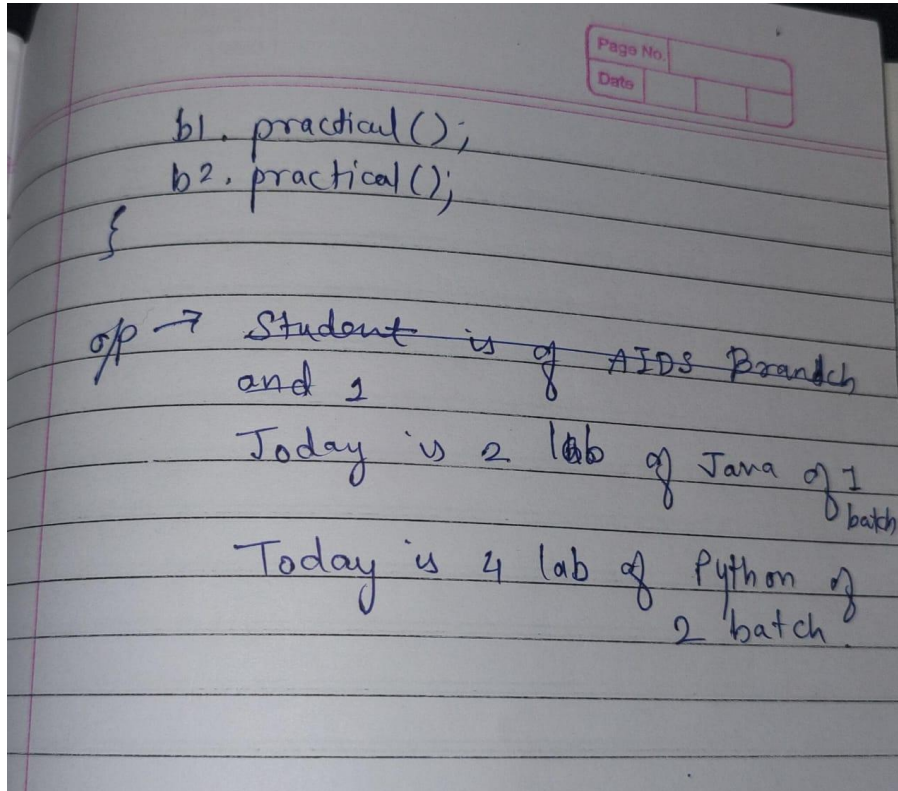 Page No.
Date
b1. practical();
b2. practical();
{
o/p → Student is of AIDS Brandch
and 1
Today is 2 lab of Java of 1
batch
Today is 4 lab of Python of
2 batch.